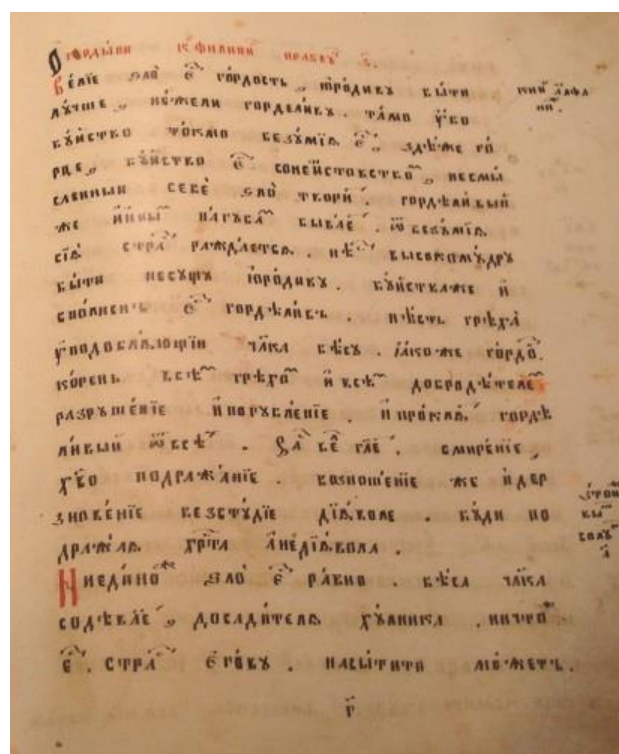 О гордыни к филипи
Ве́лїе ѕло̀ є҆́ го́рдость , ю҆ро́дивꙋ бы́ти
лꙋ́чше , не́жели горделивꙋ . та́мо ᲂу҆́бо
бꙋ́йство то́кмо безꙋ́мїѧ є҆́ , здѣ́же го́
рце , бꙋ́йство є҆́ сонеи́стовство , несмы́
сленный себѐ ѕло̀ твори́ . горделивый
же и҆ны̑ па́гꙋба быва́е . ѿ безꙋ́мїѧ
сїѧ̀ стра́ ражда́етсѧ . нѣ́ высокомꙋ́дрꙋ
бы́ти несꙋ́щꙋ ю҆ро́дивꙋ . бꙋ́йстваже и҆
спо́лненъ є҆́ гордѣли́въ . нѣ́сть грѣха̀
ᲂу҆подоблѧ́ющїи чл҃ка бѣ́сꙋ . ꙗ҆́коже го́рдо .
ко́рень всѣ̑ грѣхо́ и҆ всѣ̑ добродѣ́теле
разрꙋше́нїе и҆ погꙋбле́нїе . и҆ про́клѧ гордѣ
ли́вый ѿ всѣ́ . гл҃е . смире́нїе ,
хв҃о подража́нїе . возноше́нїе же и҆ дер
знове́нїе безстꙋ́дїе дїѧ́воле . бꙋ́ди по
дража́ѧ хрⷭ҇та̀ а҆ не дїѧ́вола .
Ниеди́но ѕло̀ є҆́ ра́вно . бѣ́са чл҃ка
содѣ́вае , досади́телѧ хꙋ́лника . ничто́
є҆́ . стра́ є҆гѡ́вꙋ . насы́тити мо́жетъ .
г҃